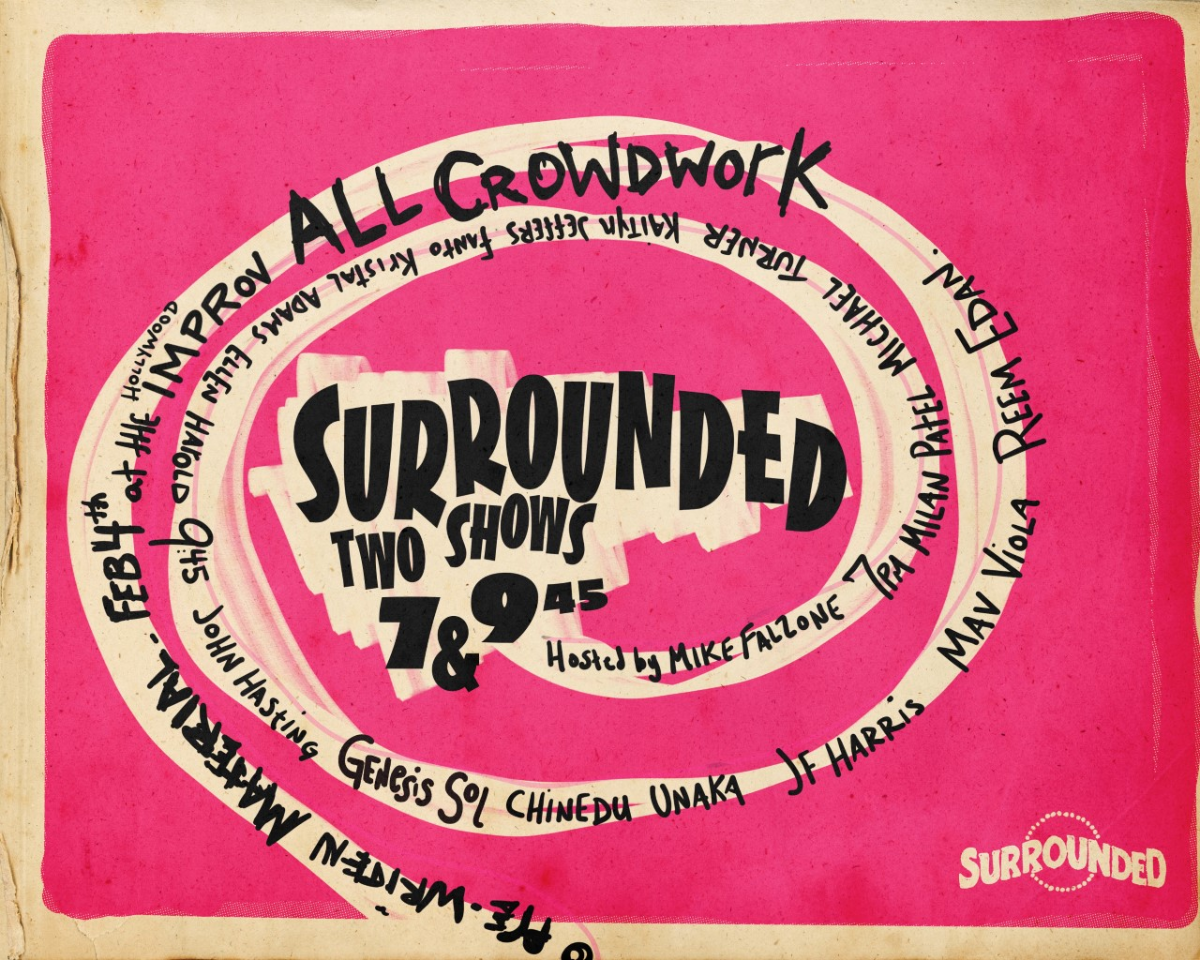 SURROUNDED
TWO SHOWS
7 & 9 45
Hosted by MIKE FALZONE 7PM MILAN PATEL MICHAEL TURNER KAITLYN JEFFERS FANTO KRISTAL ADAMS ELLEN HAROLD 9:45 JOHN HASTING GENESIS SOL CHINEDU UNAKA JF HARRIS MAV VIOLA REEM EDAN.
ALL CROWDWORK
0 PRE-WRITTEN MATERIAL. FEB 4th at the HOLLYWOOD IMPROV
SURROUNDED